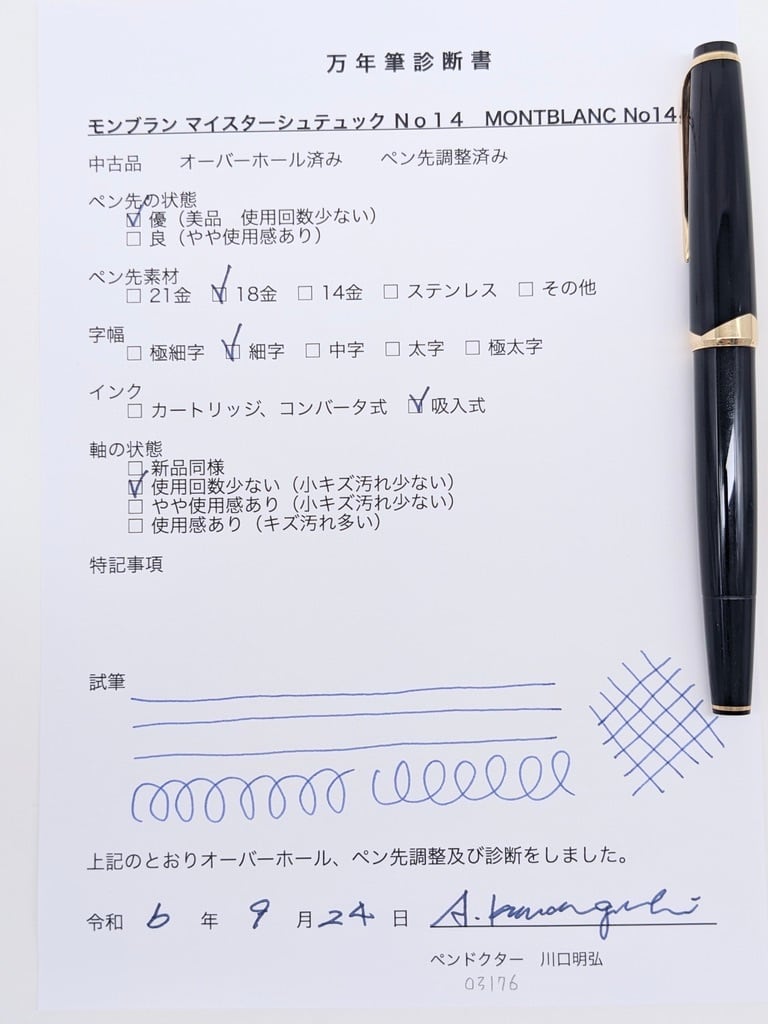 万年筆診断書
モンブラン マイスターシュテュック No14 MONTBLANC No14
中古品 オーバーホール済み ペン先調整済み
ペン先の状態
☑ 優（美品 使用回数少ない）
□ 良（やや使用感あり）
ペン先素材
□ 21金 ☑ 18金 □ 14金 □ ステンレス □ その他
字幅
□ 極細字 ☑ 細字 □ 中字 □ 太字 □ 極太字
インク
□ カートリッジ、コンバータ式 ☑ 吸入式
軸の状態
□ 新品同様
☑ 使用回数少ない（小キズ汚れ少ない）
□ やや使用感あり（小キズ汚れ少ない）
□ 使用感あり（キズ汚れ多い）
特記事項
試筆
上記のとおりオーバーホール、ペン先調整及び診断をしました。
令和 6 年 9 月 24 日 A. Kawaguchi
ペンドクター 川口明弘
03176